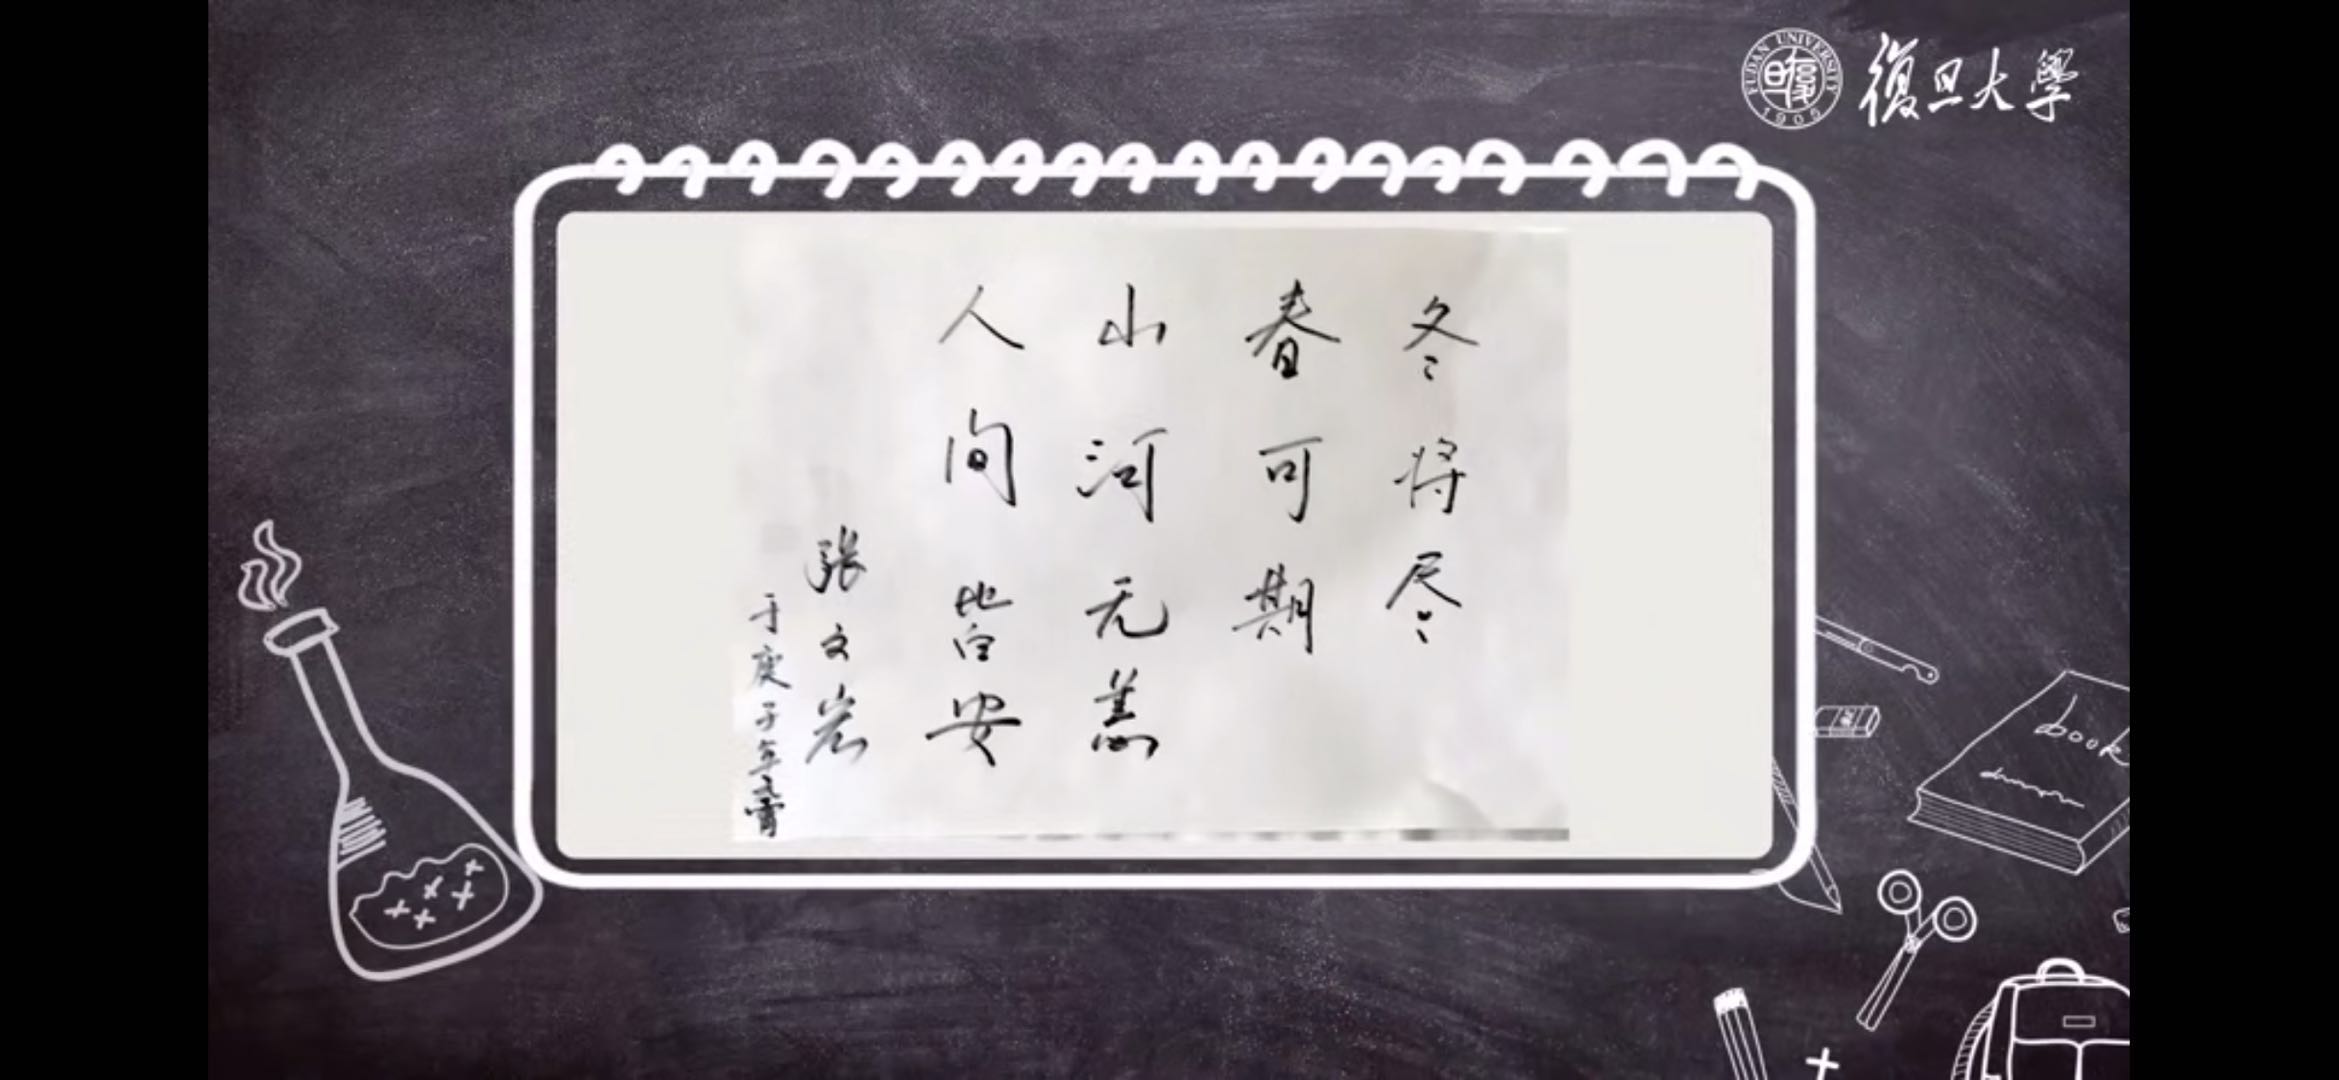 復旦大學
FUDAN UNIVERSITY
1905
冬将尽
春可期
山河无恙
人间皆安
张文宏
于庚子年元宵
book